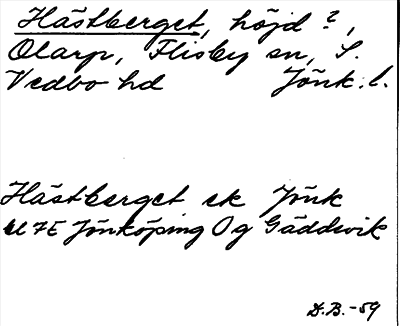 Hästberget, höjd ?,
Olarp, Flisby sn, S.
Vedbo hd Jönk. l.
Hästberget ek Jönk
U 7E Jönköping Og Gäddvik
D.B. -59